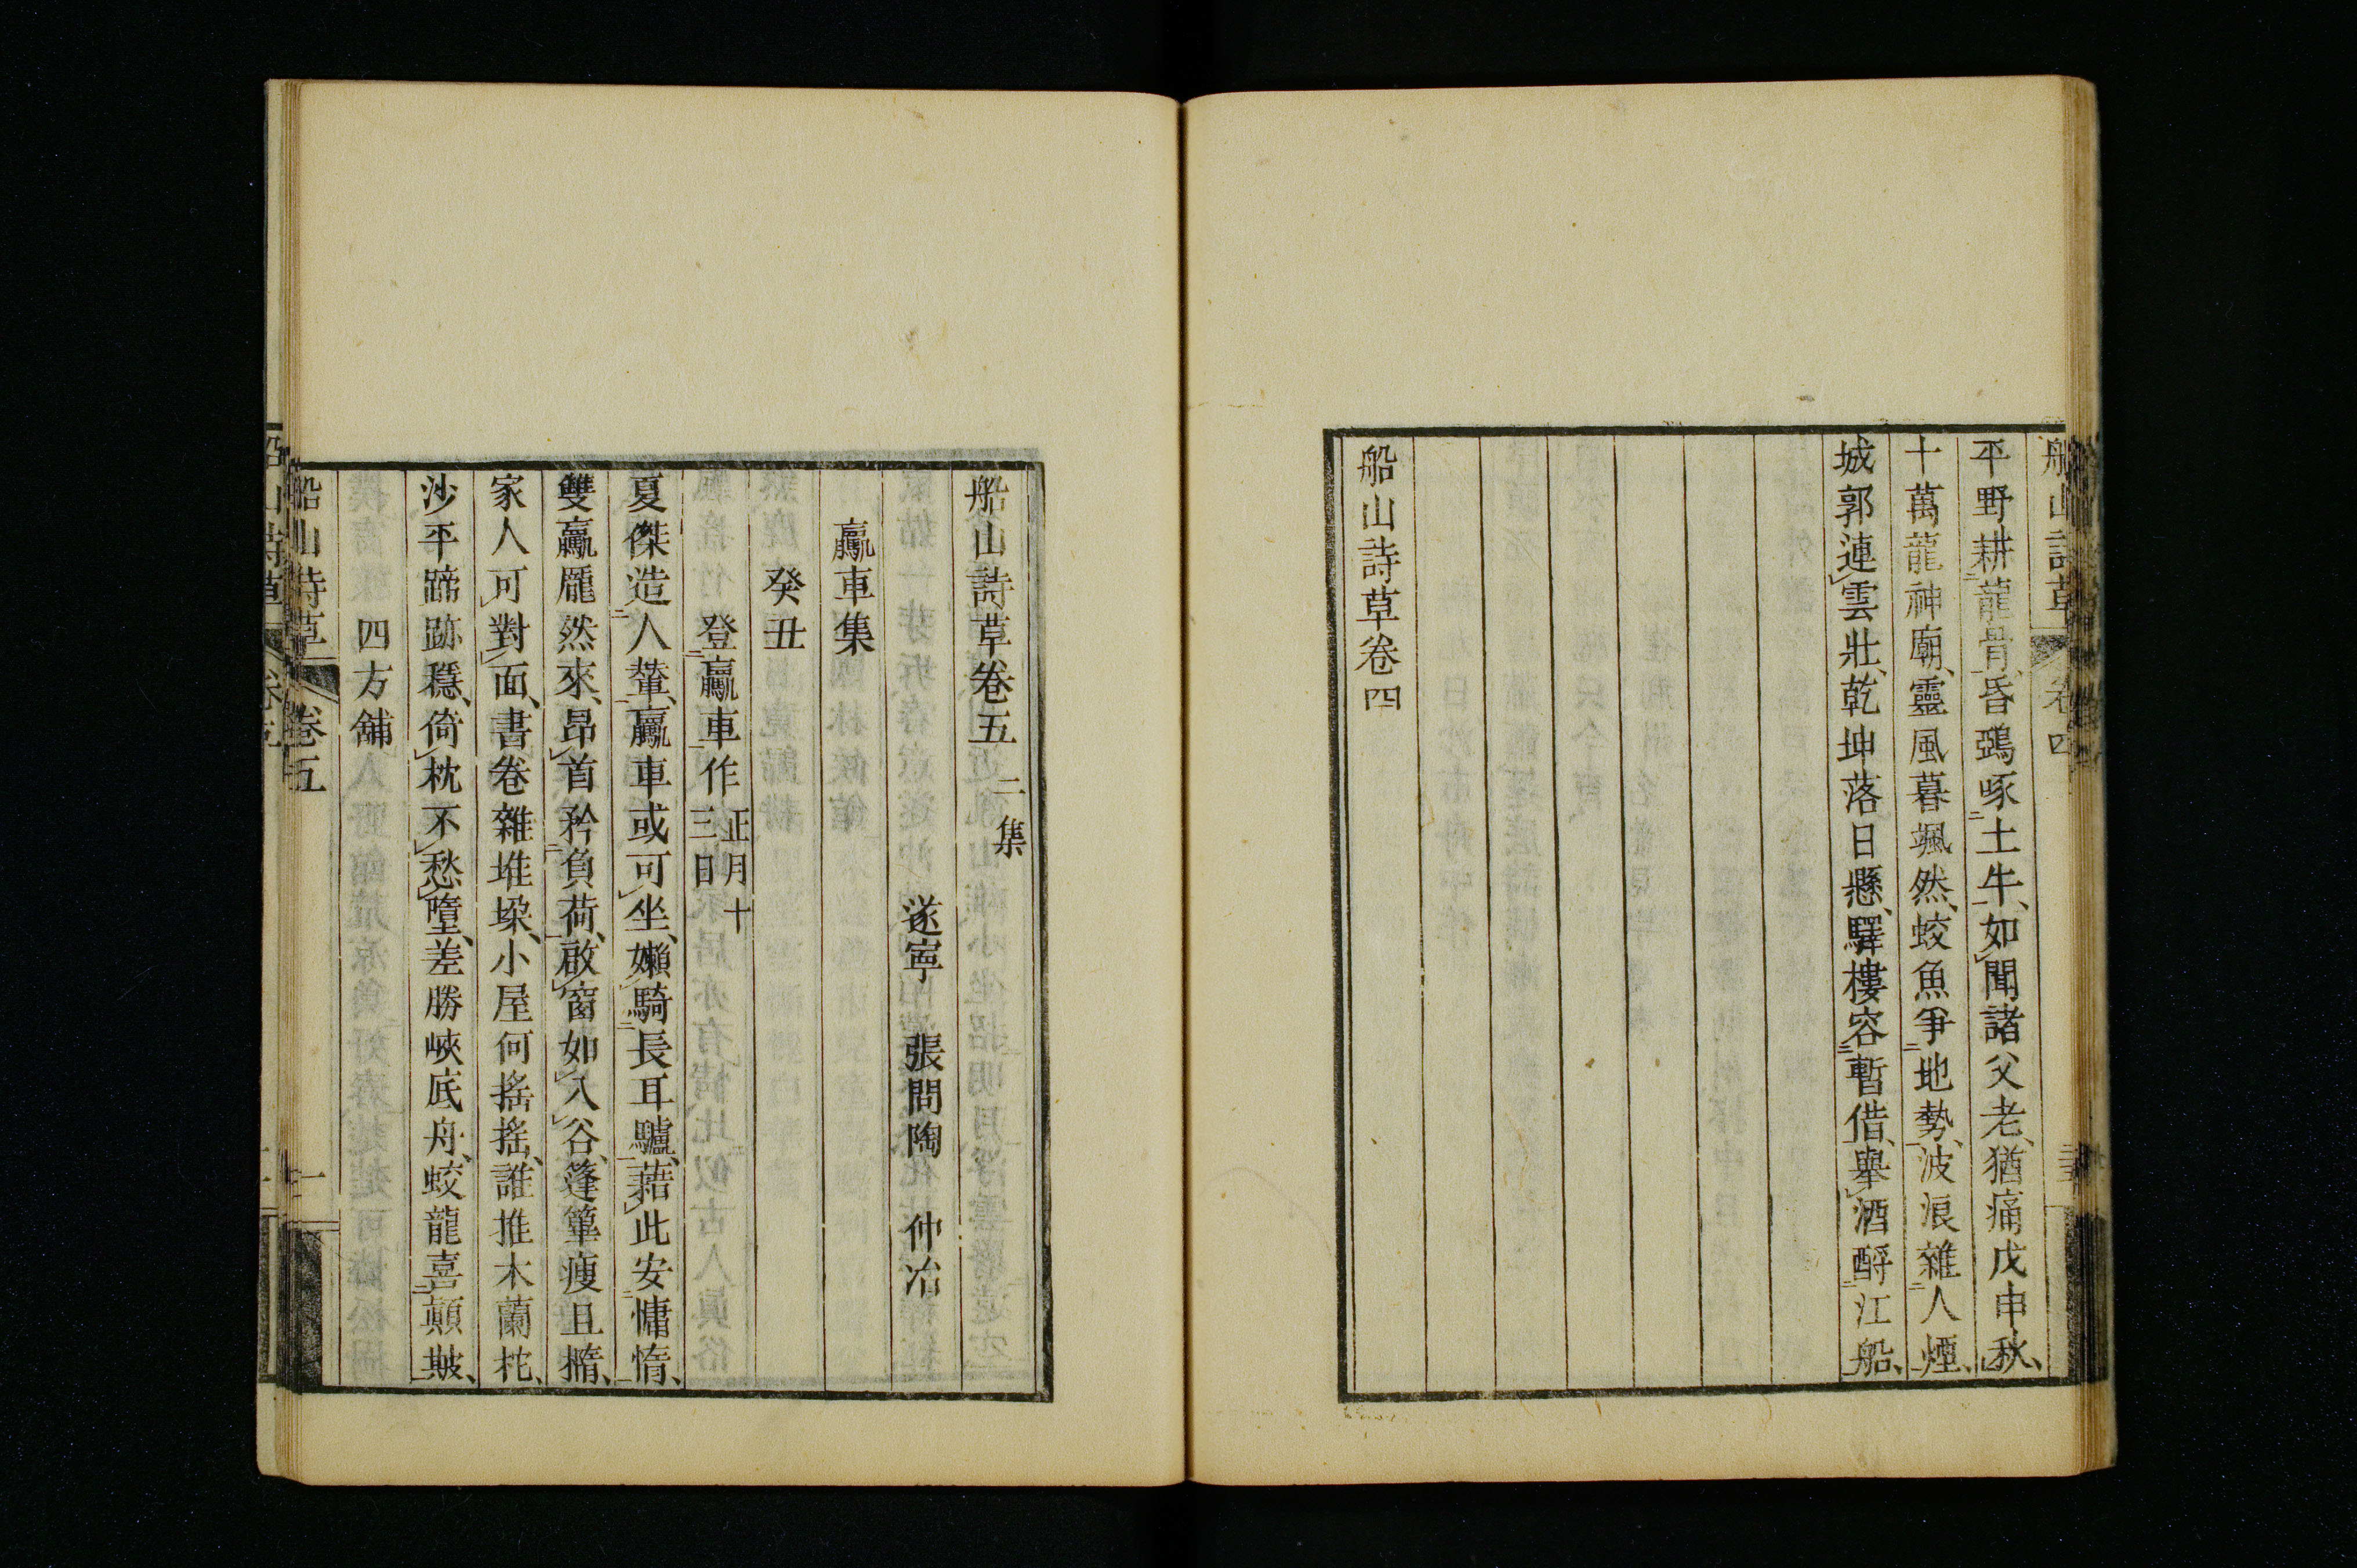 船山詩草 卷四
平野耕龍骨昏鵶啄土牛如聞諸父老猶痛戊申秋
十萬龍神廟靈風暮颯然蛟魚爭地勢波浪雜人煙
城郭連雲壯乾坤落日懸驛樓容暫借舉酒酹江船
船山詩草卷四
船山詩草卷五 二集
遂寧 張問陶 仲冶
驘車集
癸丑
登驘車作 正月十三日
夏傑造人輦驘車或可坐嬾騎長耳驢藉此安慵惰
雙驘龎然來昂首矜負荷啟窗如入谷篷篳瘦且撱
家人可對面書卷雜堆垜小屋何搖搖誰推木蘭柁
沙平蹄跡穩倚枕不愁墮差勝峽底舟蛟龍喜顛簸
四方舖
船山詩草 卷五 一